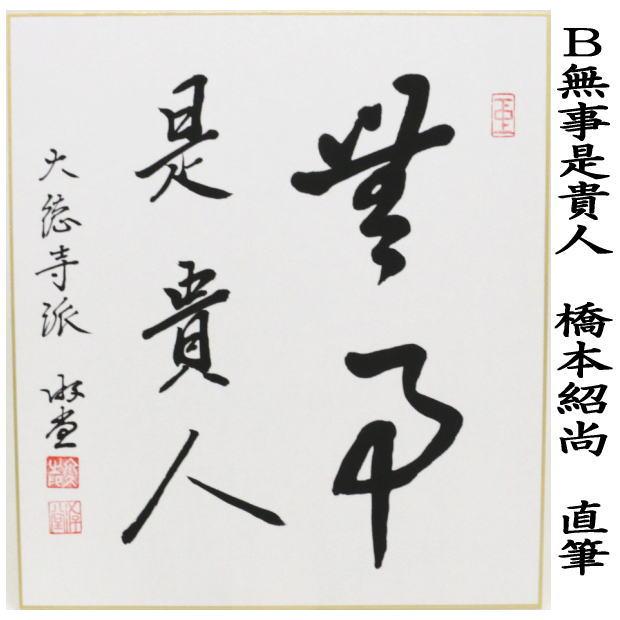 B無事是貴人 橋本紹尚 直筆
無事
是貴人
大徳寺派